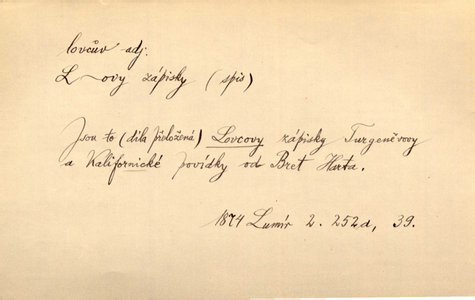 lovcův adj.
L~ovy zápisky (spis)
Jsou to (díla přeložená) Lovcovy zápisky Turgeněvovy
a Kalifornické povídky od Bret Harta.
1874 Lumír 2. 252d, 39.